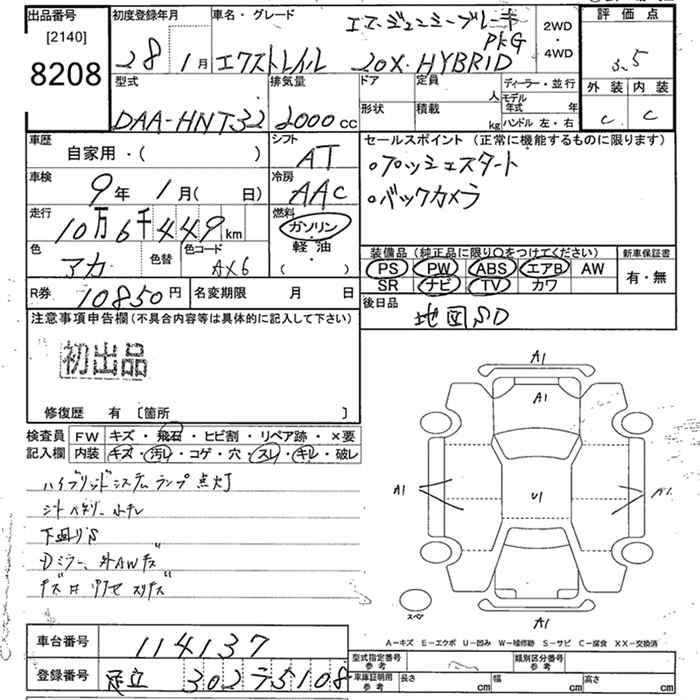 出品番号 [2140] 8208
初度登録年月 28 1月
車名・グレード エクストレイル 20X HYBRID エマージェンシーブレーキ PKG
2WD・4WD
評価点 3.5
外装 C 内装 C
型式 DAA-HNT32
排気量 2000cc
ドア 形状
定員 人 積載 kg
ディーラー・並行
モデル年式 年
ハンドル 左・右
車歴 自家用・( )
シフト AT
車検 9年 1月( 日)
冷房 AAC
走行 10万6千449km
燃料 ガソリン・軽油・( )
色 アカ 色替 色コード AX6
R券 10850円 名変期限 月 日
セールスポイント (正常に機能するものに限ります)
○プッシュスタート
○バックカメラ
装備品(純正品に限り○をつけてください)
PS PW ABS エアB AW
SR ナビ TV カワ
新車保証書 有・無
後日品 地図SD
注意事項申告欄(不具合内容等は具体的に記入して下さい)
初出品
修復歴 有 〔箇所 〕
検査員記入欄
FW キズ・飛石・ヒビ割・リペア跡・×要
内装 キズ・汚レ・コゲ・穴・スレ・キレ・破レ
ハイブリッドシステムランプ点灯
下廻りS
A1
A1
A1 U1 A1
A1
スペア
A-キズ E-エクボ U-凹み W-補修跡 S-サビ C-腐食 XX-交換済
車台番号 114137
登録番号 足立 302 5108
型式指定番号 参考
類別区分番号 参考
車庫証明用 参考 長さ cm 幅 cm 高さ cm